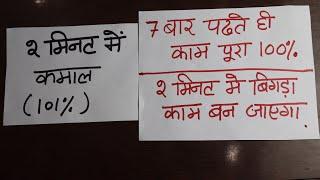 २ मिनट में
कमाल
(101%)
7 बार पढते ही
काम पूरा 100%.
२ मिनट मे बिगड़ा
काम बन जाएगा.